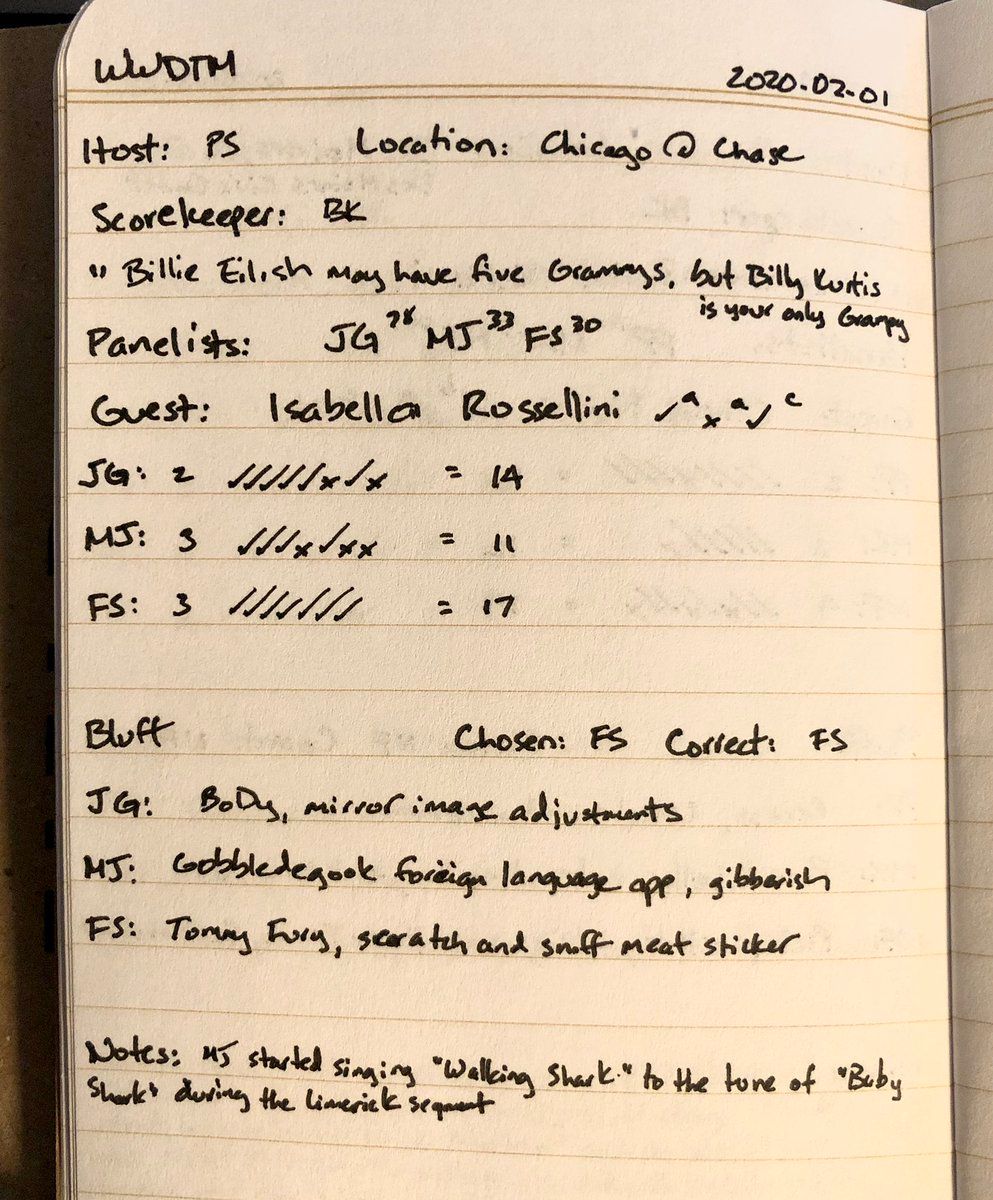 WWDTM 2020-02-01
Host: PS Location: Chicago @ Chase
Scorekeeper: BK
" Billie Eilish may have five Grammys, but Billy Kurtis
is your only Grampy
Panelists: JG 28 MJ 33 FS 30
Guest: Isabella Rossellini ✓a xa ✓c
JG: 2 ✓✓✓✓✓x✓x = 14
MJ: 3 ✓✓✓x✓xx = 11
FS: 3 ✓✓✓✓✓✓✓ = 17
Bluff Chosen: FS Correct: FS
JG: BoDy, mirror image adjustments
MJ: Gobbledegook foreign language app, gibberish
FS: Tommy Fury, scratch and sniff meat sticker
Notes: MJ started singing "Walking Shark" to the tune of "Baby
Shark" during the limerick segment